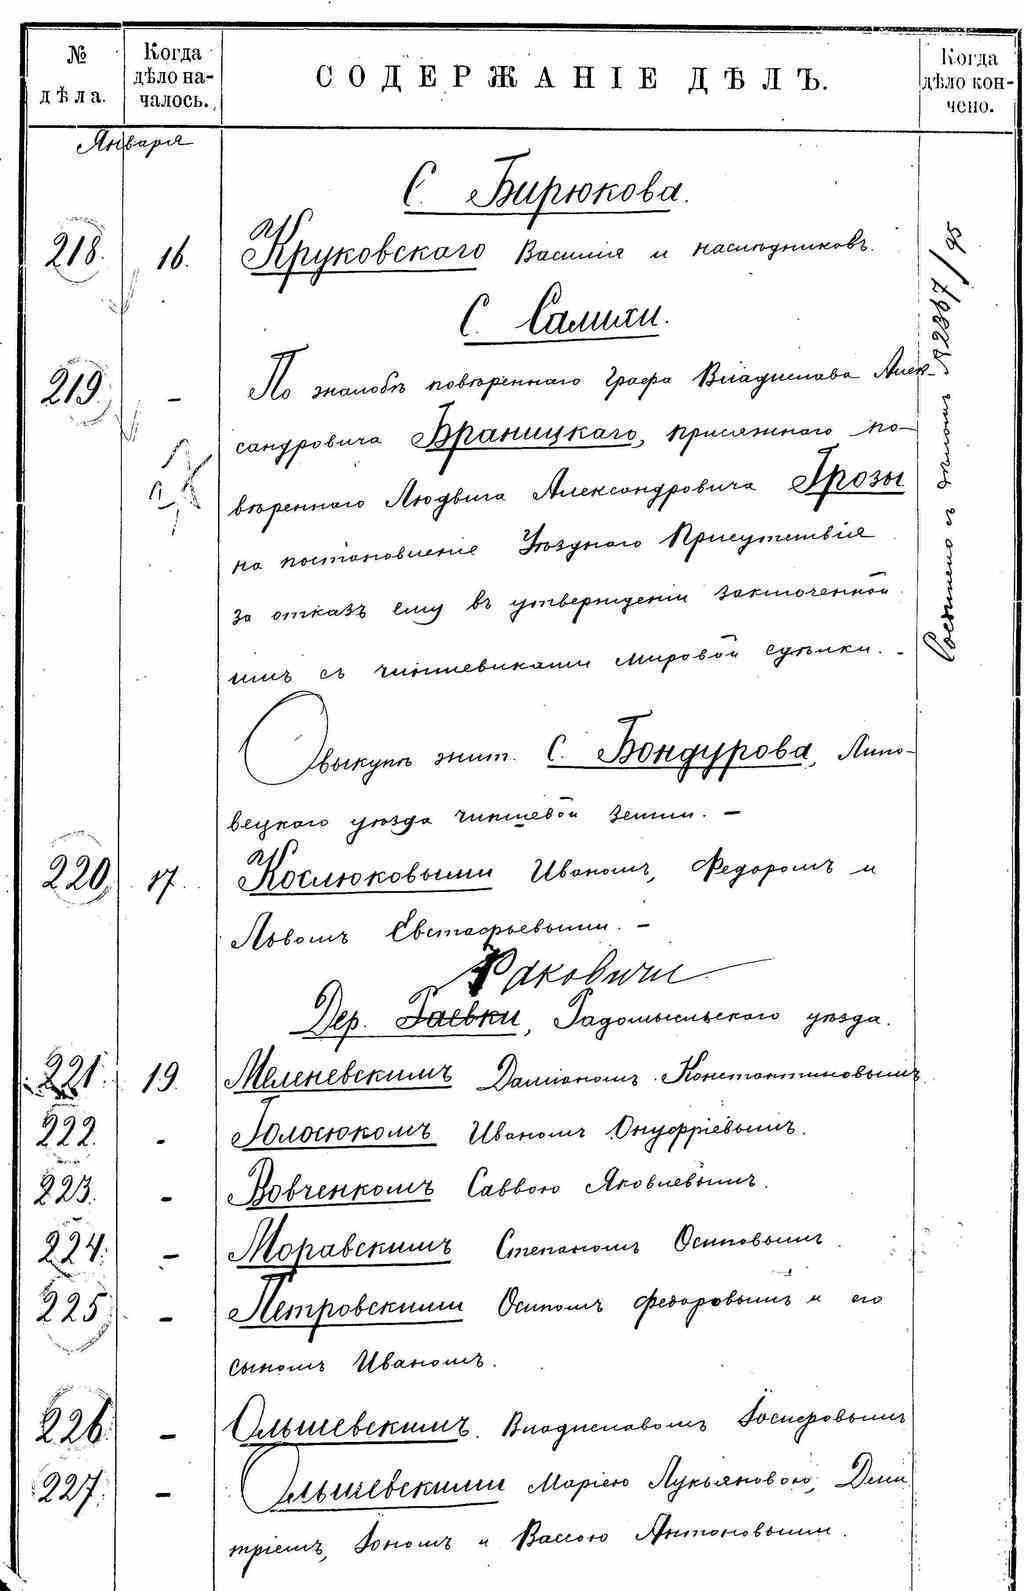 № дѣла.
Когда дѣло началось.
СОДЕРЖАНІЕ ДѢЛЪ.
Когда дѣло кончено.
Января
С. Бирюкова.
218. 16. Круковскаго Василія и наслѣдниковъ.
С. Салихи.
219. - По жалобѣ повѣреннаго Графа Владислава Алек-
сандровича Враницкаго, присяжнаго по-
вѣреннаго Людвига Александровича Грозы
на постановленіе Уѣзднаго Присутствія
за отказъ ему въ утвержденіи заключенной
имъ съ чиншевиками мировой сдѣлки. -
О выкупѣ жит. С. Бондурова, Липо-
вецкаго уѣзда чиншевой земли. -
220. 17. Кослюковыми Иваномъ, Федоромъ и
Львомъ Евстафьевыми. -
Раковичи
Дер. Гаевки, Радомысльскаго уѣзда.
221. 19. Меленевскимъ Даміаномъ Константиновымъ
222. - Голосюкомъ Иваномъ Онуфріевымъ.
223. - Вовченкомъ Саввою Яковлевымъ.
224. - Моравскимъ Степаномъ Осиповымъ.
225 - Петровскими Осипомъ Федоровымъ и его
сыномъ Иваномъ.
226. - Ольшевскимъ Владиславомъ Іосифовымъ
227. - Ольшевскими Маріею Лукьяновою, Дми
тріемъ, Іономъ и Вассою Антоновыми.
съ дѣломъ №2367/95